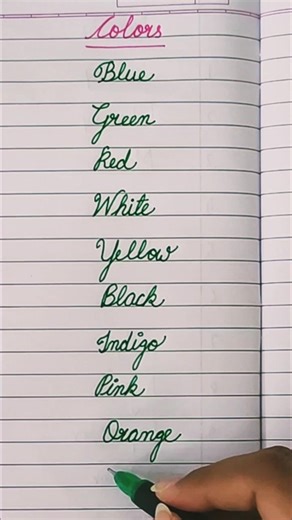 Colors
Blue
Green
Red
White
Yellow
Black
Indigo
Pink
Orange